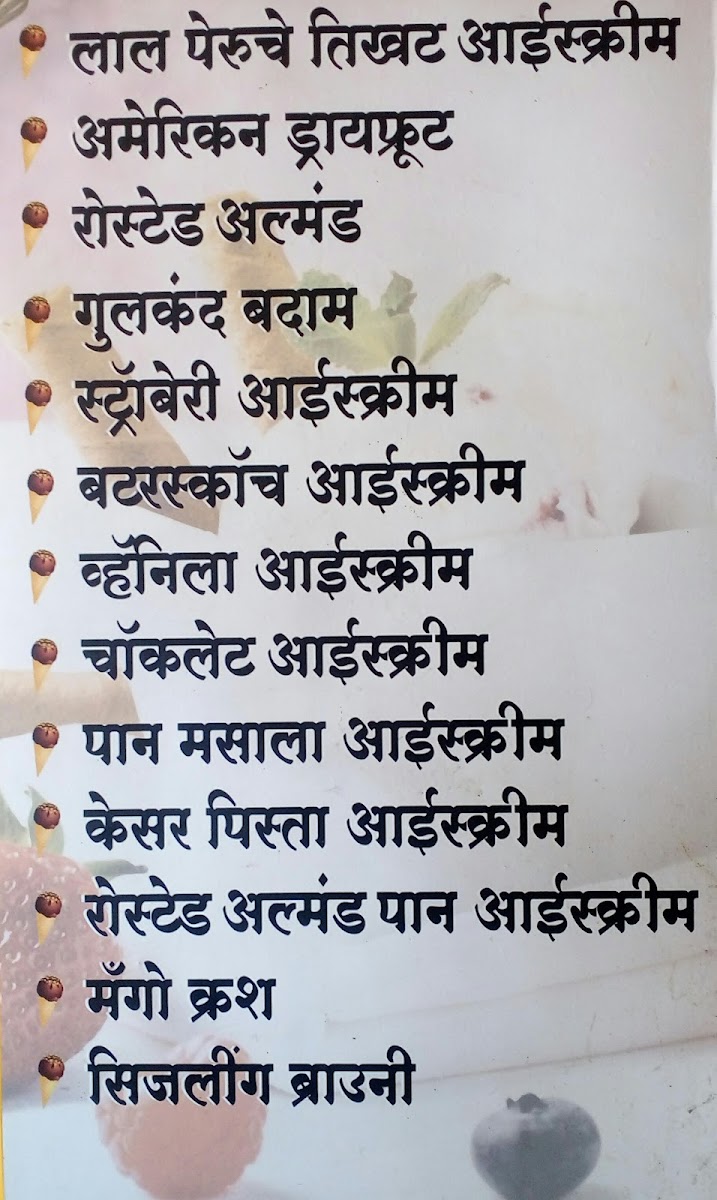 लाल पेरुचे तिखट आईस्क्रीम
अमेरिकन ड्रायफ्रूट
रोस्टेड अल्मंड
गुलकंद बदाम
स्ट्रॉबेरी आईस्क्रीम
बटरस्कॉच आईस्क्रीम
व्हॅनिला आईस्क्रीम
चॉकलेट आईस्क्रीम
पान मसाला आईस्क्रीम
केसर पिस्ता आईस्क्रीम
रोस्टेड अल्मंड पान आईस्क्रीम
मँगो क्रश
सिजलींग ब्राउनी